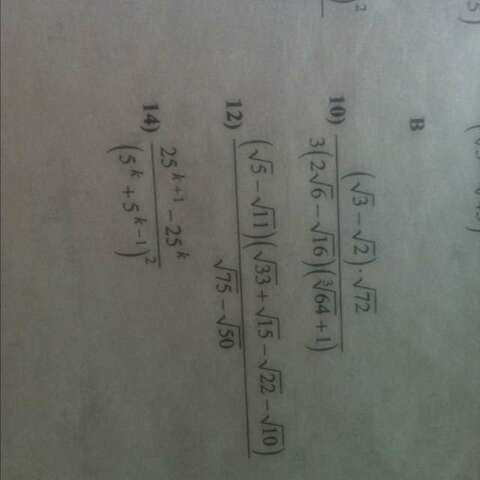 B
10) (√3 − √2)·√72
3(2√6 − √16)(∛64 + 1)
12) (√5 − √11)(√33 + √15 − √22 − √10)
√75 − √50
14) 25^{k+1} − 25^k
(5^k + 5^{k−1})^2